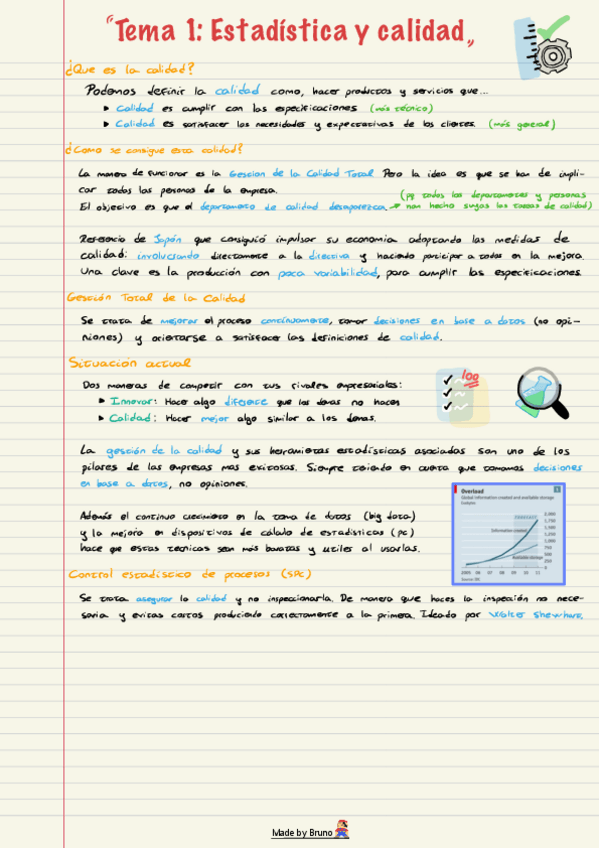 "Tema 1: Estadística y calidad"
¿Que es la calidad?
Podemos definir la calidad como, hacer productos y servicios que...
▸ Calidad es cumplir con las especificaciones (más técnico)
▸ Calidad es satisfacer las necesidades y expectativas de los clientes. (más general)
¿Como se consigue esta calidad?
La manera de funcionar es la Gestion de la Calidad Total. Pero la idea es que se han de impli-
car todas las personas de la empresa.
(pq todos los departamentos y personas
El objectivo es que el departamento de calidad desaparezca. → han hecho suyas las tareas de calidad)
Referencia de Japón que consiguió impulsar su economia adoptando las medidas de
calidad: involucrando directamente a la directiva y haciendo participar a todos en la mejora.
Una clave es la producción con poca variabilidad, para cumplir las especificaciones.
Gestión Total de la Calidad
Se trata de mejorar el proceso continuamente, tomar decisiones en base a datos (no opi-
niones) y orientarse a satisfacer las definiciones de calidad.
Situación actual
100
Dos maneras de competir con tus rivales empresariales:
▸ Innovar: Hacer algo diferente que los demas no hacen
▸ Calidad: Hacer mejor algo similar a los demas.
La gestión de la calidad y sus herramientas estadísticas asociadas son uno de los
pilares de las empresas mas exitosas. Siempre teniendo en cuenta que tomamos decisiones
en base a datos, no opiniones.
Overload 1
Global information created and available storage
Exabytes
FORECAST
2,000
1,750
1,500
1,250
1,000
750
500
250
0
Information created
Available storage
2005 06 07 08 09 10 11
Source: IDC
Además el continuo crecimiento en la toma de datos (big data)
y la mejora en dispositivos de cálculo de estadísticas (pc)
hace que estas tecnicas sean más baratas y utiles al usarlas.
Control estadístico de procesos (SPC)
Se trata asegurar la calidad y no inspeccionarla. De manera que haces la inspección no nece-
saria y evitas costos produciendo correctamente a la primera. Ideado por Walter Shewhart.
Made by Bruno